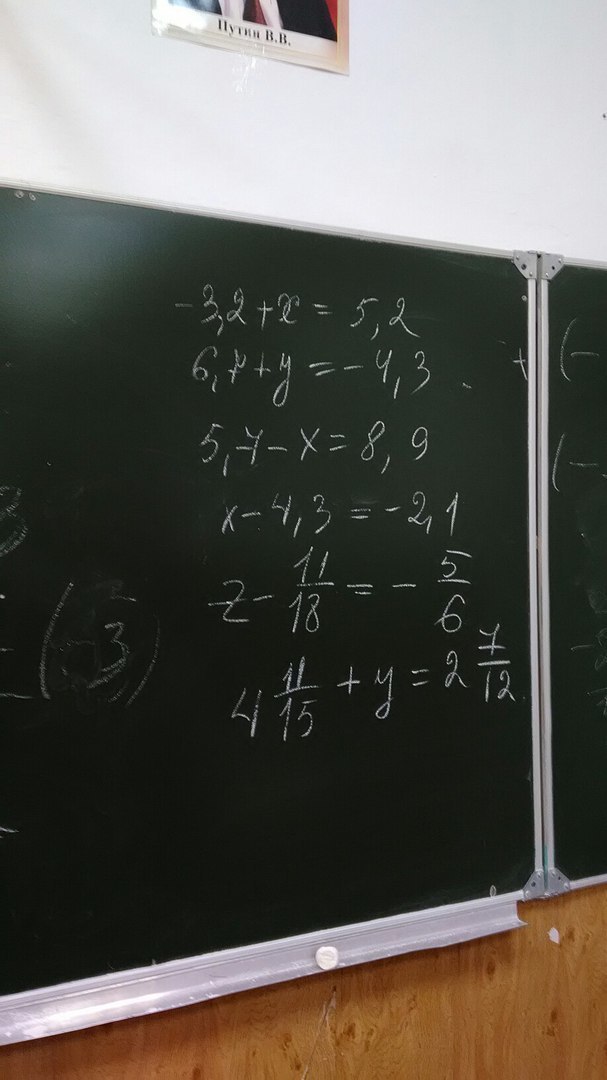 Путин В.В.
-3,2+x = 5,2
6,7+y = -4,3
5,7-x = 8,9
x-4,3 = -2,1
z - 11/18 = - 5/6
4 11/15 + y = 2 7/12
+ (-
(-
(-3)